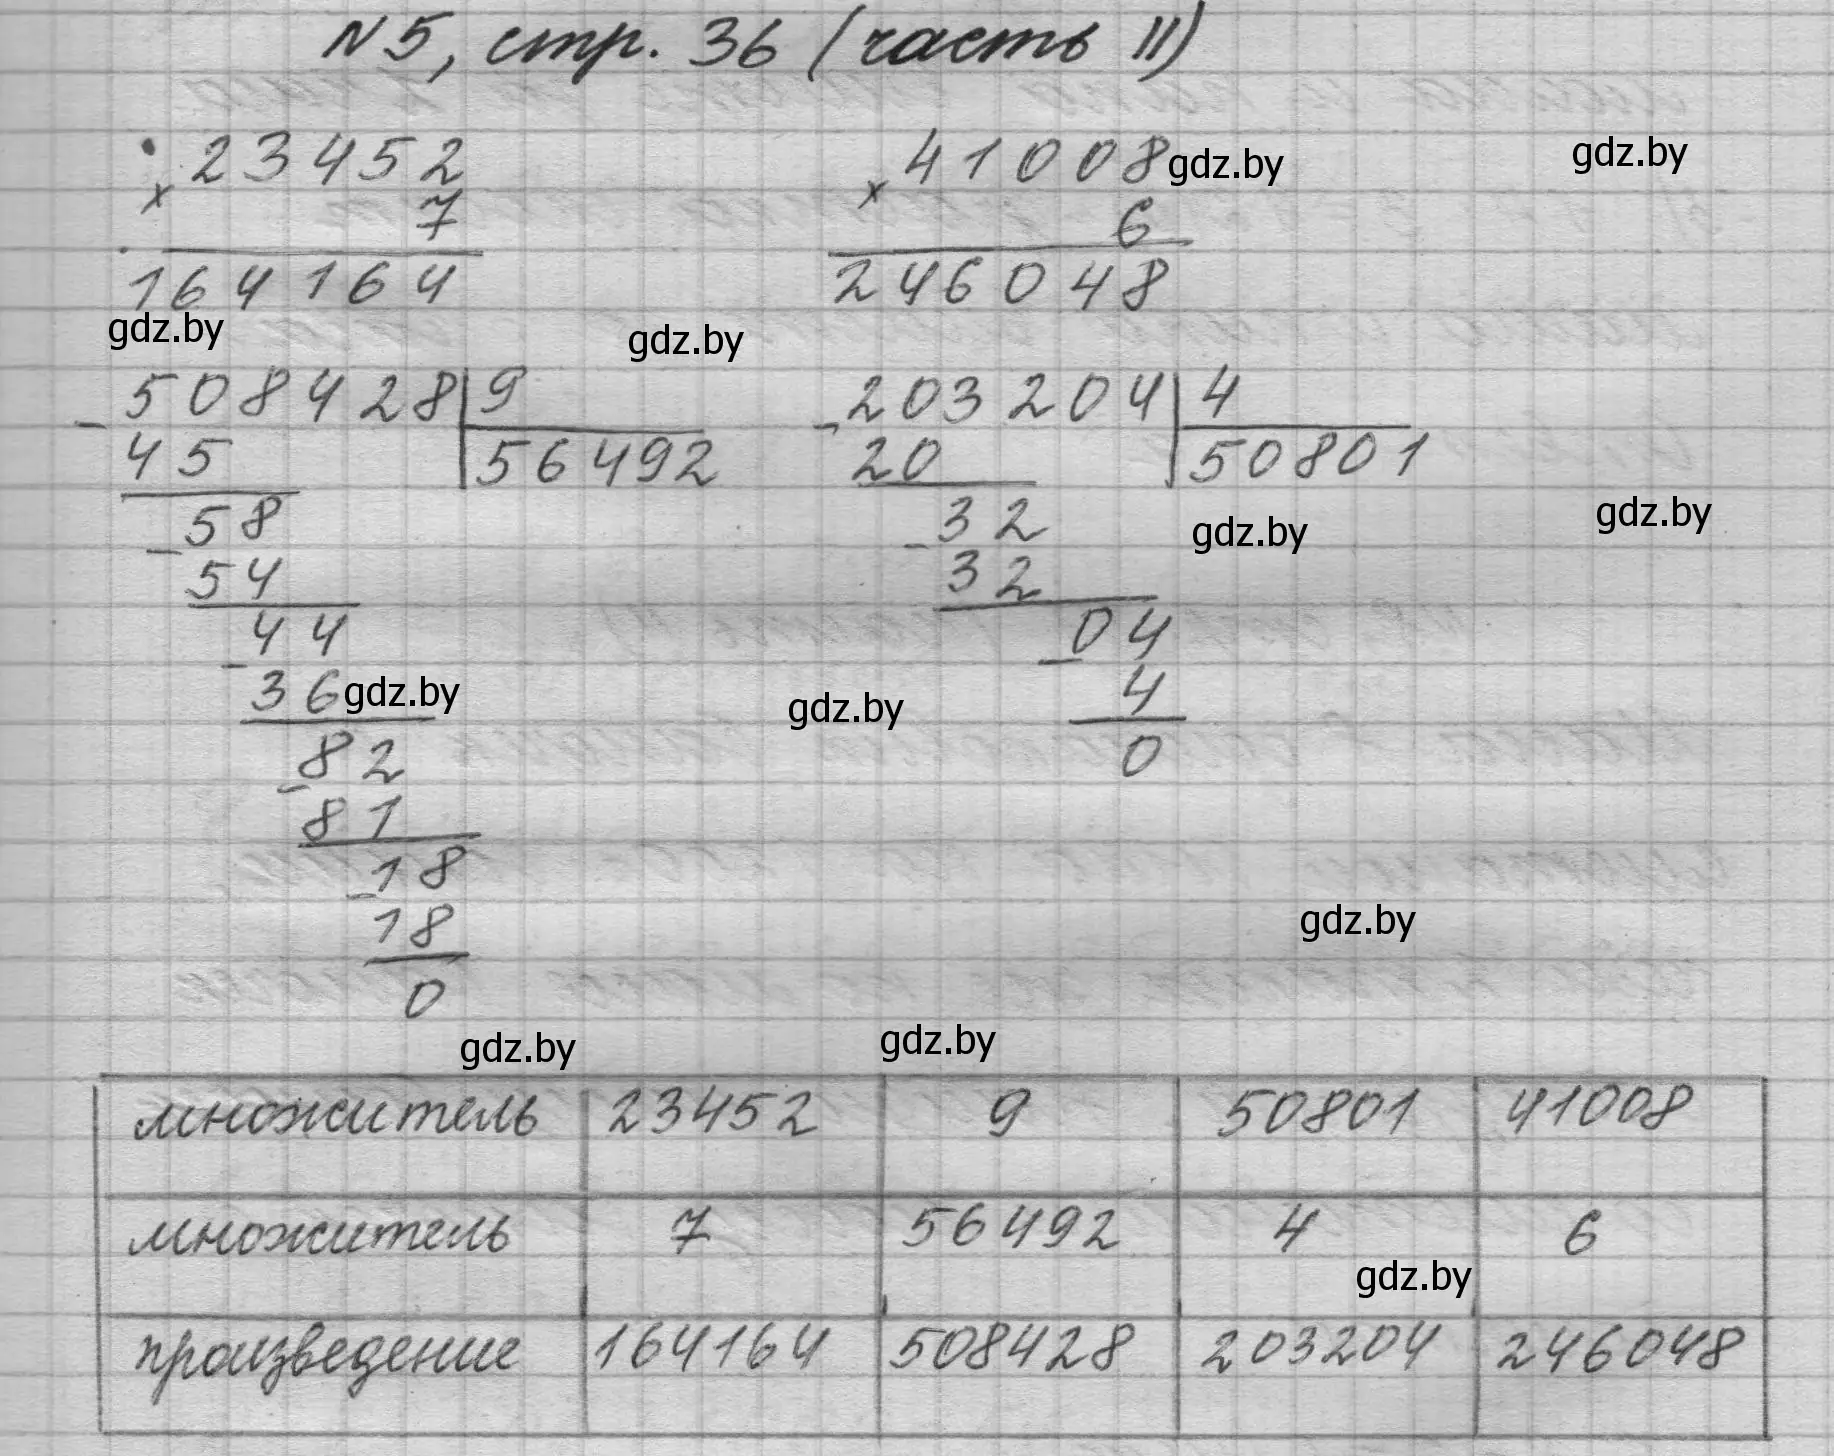 N5, стр. 36 (часть II)
× 23452
7
164164
× 41008
6
246048
gdz.by
gdz.by
gdz.by
gdz.by
- 508428 | 9
45 | 56492
- 58
54
- 44
36
- 82
81
- 18
18
0
- 203204 | 4
20 | 50801
- 32
32
- 04
4
0
gdz.by
gdz.by
gdz.by
gdz.by
gdz.by
gdz.by
gdz.by
множитель 23452 9 50801 41008
множитель 7 56492 4 6
gdz.by
произведение 164164 508428 203204 246048